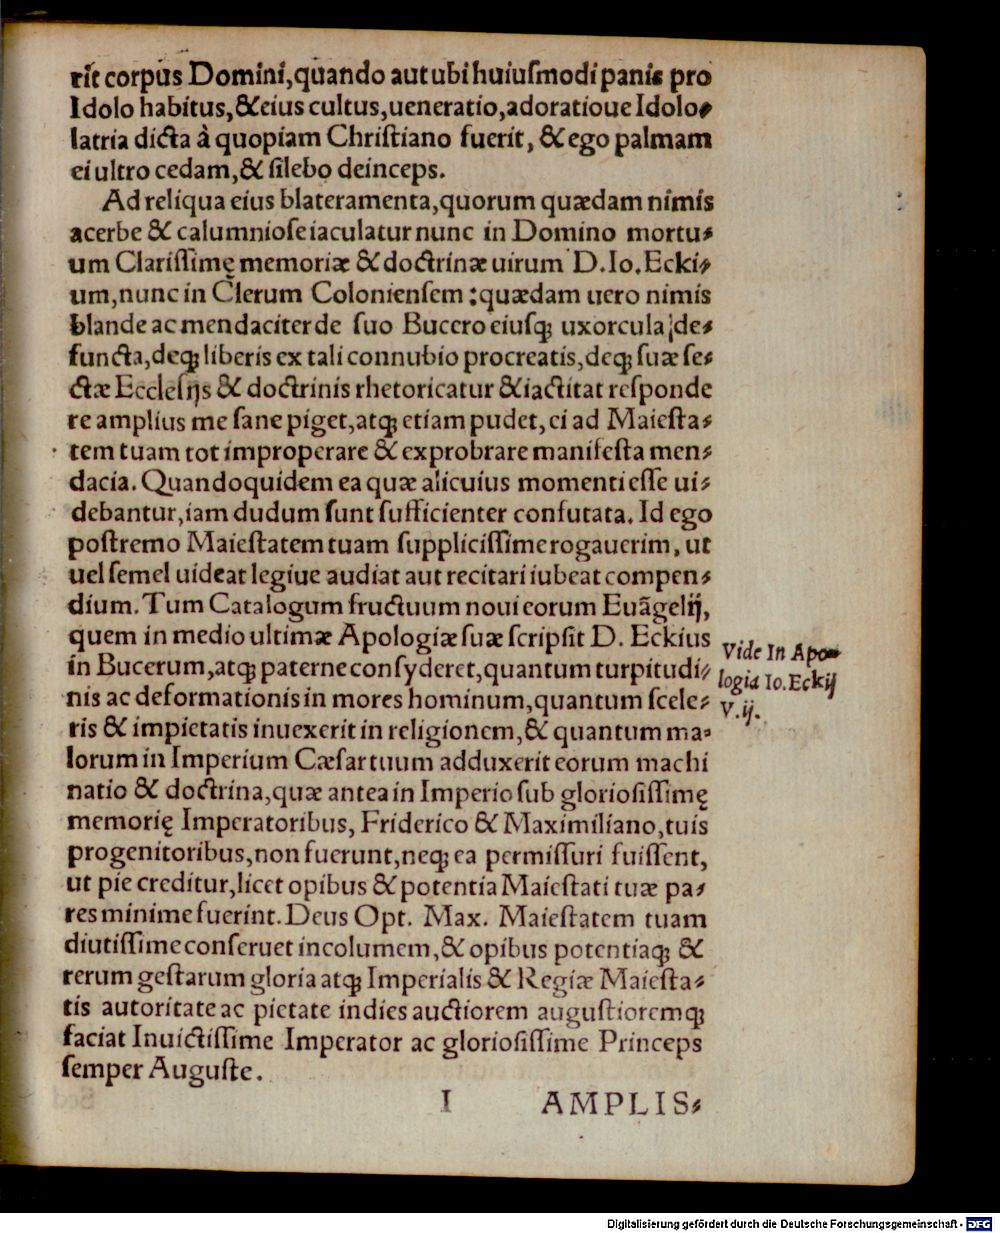 rit corpus Domini, quando aut ubi huiuſmodi panis pro
Idolo habitus, & eius cultus, ueneratio, adoratioue Idolo⸗
latria dicta à quopiam Chriſtiano fuerit, & ego palmam
ei ultro cedam, & ſilebo deinceps.
Ad reliqua eius blateramenta, quorum quædam nimis
acerbe & calumnioſe iaculatur nunc in Domino mortu⸗
um Clariſſimę memoriæ & doctrinæ uirum D. Io. Ecki⸗
um, nunc in Clerum Colonienſem: quædam uero nimis
blande ac mendaciter de ſuo Bucero eiuſqꝫ uxorcula de⸗
functa, deqꝫ liberis ex tali connubio procreatis, deqꝫ ſuæ ſe⸗
ctæ Eccleſijs & doctrinis rhetoricatur & iactitat reſponde
re amplius me ſane piget, atqꝫ etiam pudet, ei ad Maieſta⸗
tem tuam tot improperare & exprobrare manifeſta men⸗
dacia. Quandoquidem ea quæ alicuius momenti eſſe ui⸗
debantur, iam dudum ſunt ſufficienter confutata. Id ego
poſtremo Maieſtatem tuam ſuppliciſſime rogauerim, ut
uel ſemel uideat legiue audiat aut recitari iubeat compen⸗
dium. Tum Catalogum fructuum noui eorum Euãgelij,
quem in medio ultimæ Apologiæ ſuæ ſcripſit D. Eckius
in Bucerum, atqꝫ paterne conſyderet, quantum turpitudi⸗
nis ac deformationis in mores hominum, quantum ſcele⸗
ris & impietatis inuexerit in religionem, & quantum ma⸗
lorum in Imperium Cæſar tuum adduxerit eorum machi
natio & doctrina, quæ antea in Imperio ſub glorioſiſſimę
memorię Imperatoribus, Friderico & Maximiliano, tuis
progenitoribus, non fuerunt, neqꝫ ea permiſſuri fuiſſent,
ut pie creditur, licet opibus & potentia Maieſtati tuæ pa⸗
res minime fuerint. Deus Opt. Max. Maieſtatem tuam
diutiſſime conſeruet incolumem, & opibus potentiaqꝫ &
rerum geſtarum gloria atqꝫ Imperialis & Regiæ Maieſta⸗
tis autoritate ac pietate indies auctiorem auguſtioremqꝫ
faciat Inuictiſſime Imperator ac glorioſiſſime Princeps
ſemper Auguſte.
Vide In Apo⸗
logia Io. Eckij
V. ij.
I AMPLIS⸗
Digitalisierung gefördert durch die Deutsche Forschungsgemeinschaft - DFG